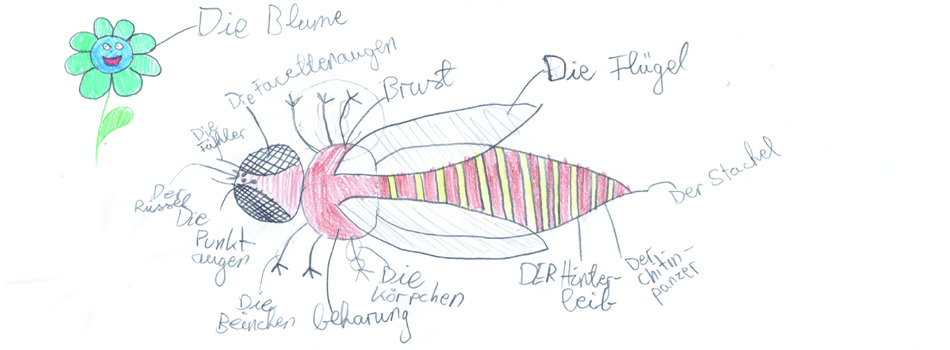 Die Blume
Die Facettenaugen
Brust
Die Flügel
Die
Fühler
Der
Rüssel
Die
Punkt
augen
Der Stachel
Die
Beinchen
beharung
Die
Körpchen
DER Hinter-
leib
Der
chitin-
panzer